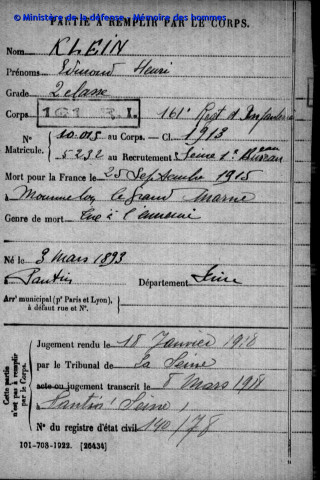 © Ministère de la défense - Mémoire des hommes
PARTIE À REMPLIR PAR LE CORPS.
Nom KLEIN
Prénoms Edmond Henri
Grade 2e classe
Corps 161 R.I. 161e Regt d'Infanterie
N° 10.015 au Corps. — Cl. 1913
Matricule. 5232 au Recrutement Seine 1er Bureau
Mort pour la France le 25 Septembre 1915
à Mourmelon le grand Marne
Genre de mort Tué à l'ennemi
Né le 3 Mars 1893
à Pantin Département Seine
Arrt municipal (pr Paris et Lyon),
à défaut rue et N°.
Cette partie n'est pas à remplir par le Corps.
Jugement rendu le 18 Janvier 1918
par le Tribunal de La Seine
acte ou jugement transcrit le 8 Mars 1918
à Pantin (Seine)
N° du registre d'état civil 140/78
101-708-1922. [26434]